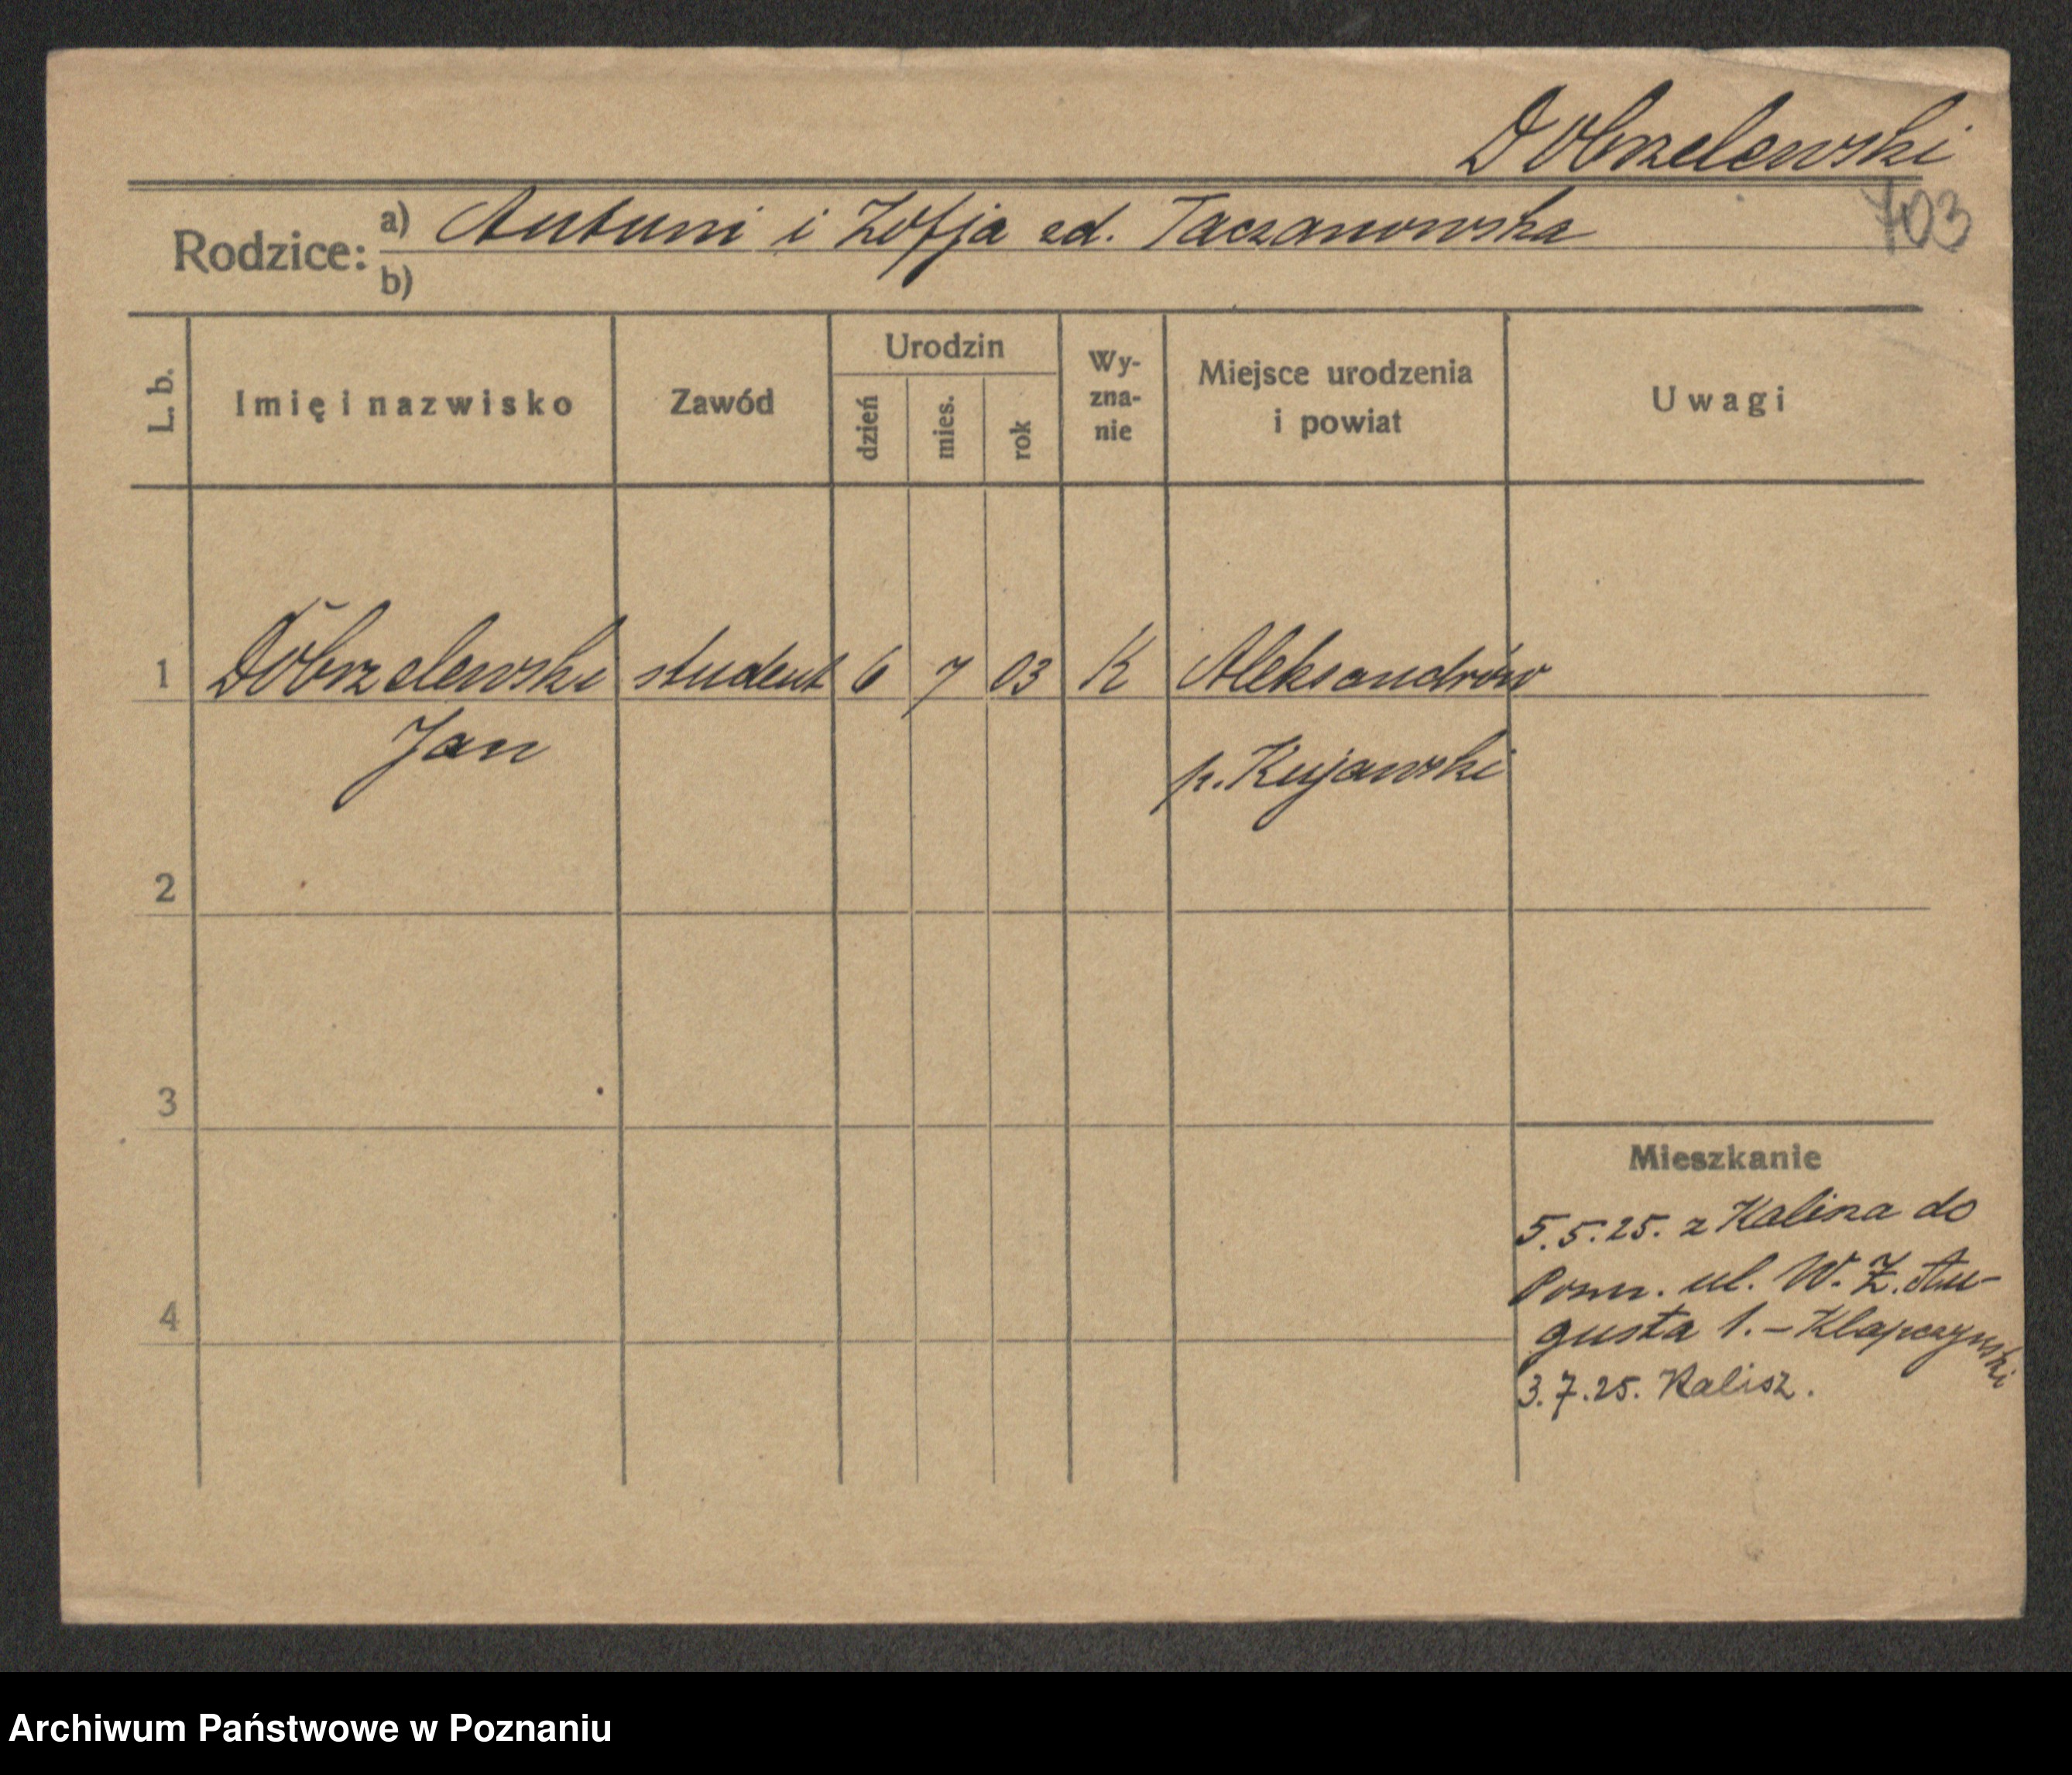 Dobrzelewski
703
Rodzice: a) Antoni i Zofja zd. Taczanowska
b)
L. b. Imię i nazwisko Zawód Urodzin dzień mies. rok Wy-zna-nie Miejsce urodzenia i powiat Uwagi
1 Dobrzelewski student 6 7 03 K Aleksandrów
Jan p. Kujawski
2
3
Mieszkanie
5.5.25. z Kalina do
Pozn. ul. W. Z. Au-
4 gusta 1. – Klapczynski
3.7.25. Kalisz.
Archiwum Państwowe w Poznaniu